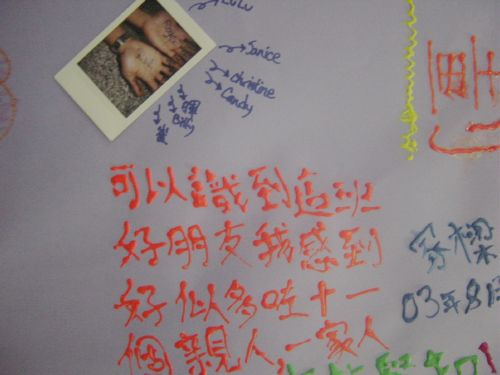 LuLu
Sonice
Christine
Candy
Billy
可以識到這班
好朋友我感到
好似多咗十一
個親人,一家人
家樑
03年8月